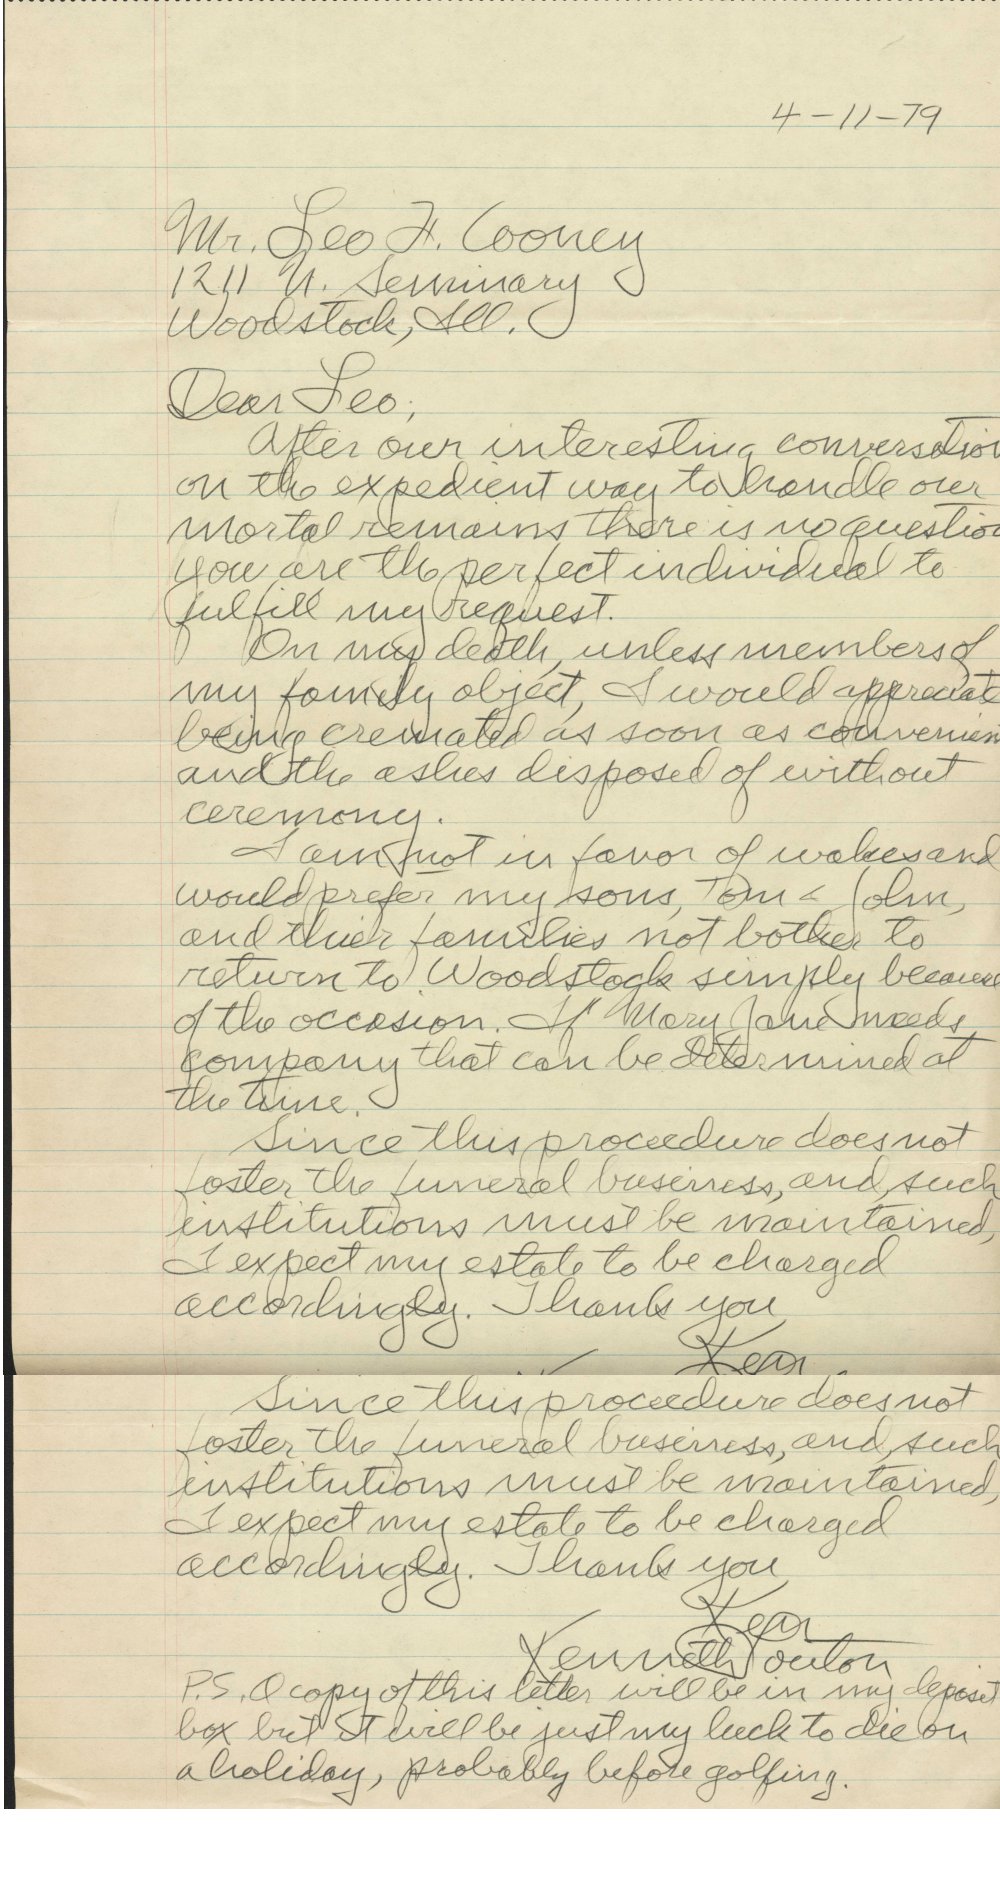 4-11-79
Mr. Leo F. Cooney
1211 N. Seminary
Woodstock, Ill.
Dear Leo;
After our interesting conversation
on the expedient way to handle our
mortal remains there is no question
you are the perfect individual to
fulfill my request.
On my death, unless members of
my family object, I would appreciate
being cremated as soon as convenien
and the ashes disposed of without
ceremony.
I am not in favor of wakes and
would prefer my sons, Tom & John,
and thier families not bother to
return to Woodstock simply because
of the occasion. If Mary Jane needs
company that can be determined at
the time.
Since this procedure does not
foster the funeral business, and, such
institutions must be maintained,
I expect my estate to be charged
accordingly. Thank you
Ken
Since this procedure does not
foster the funeral business, and, such
institutions must be maintained,
I expect my estate to be charged
accordingly. Thank you
Ken
Kenneth Pouton
P.S. A copy of this letter will be in my deposit
box but it will be just my luck to die on
a holiday, probably before golfing.